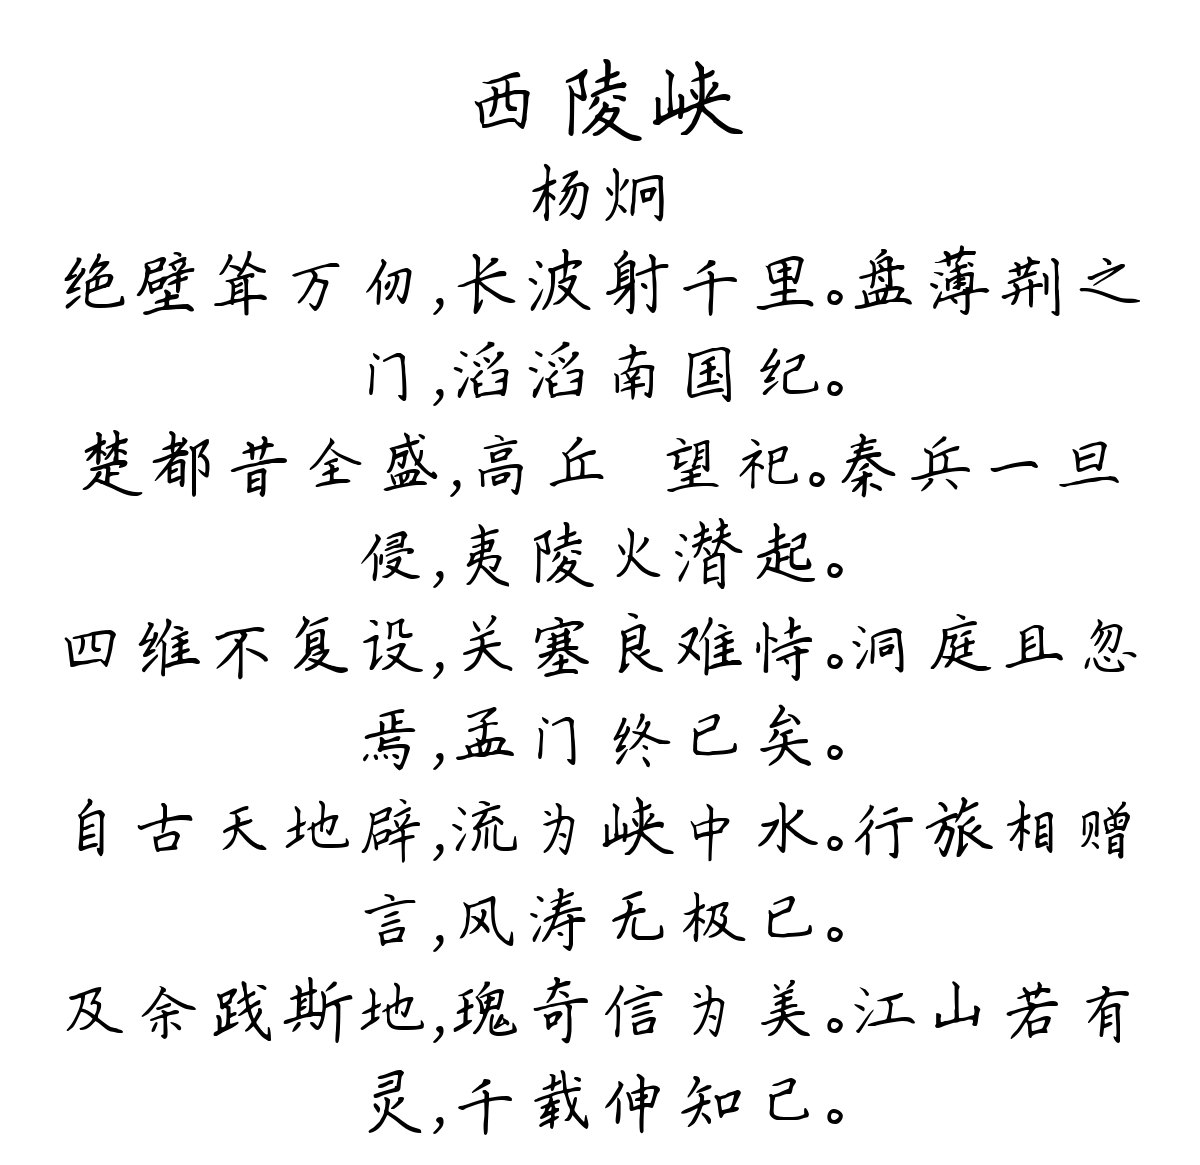 西陵峡
杨炯
绝壁耸万仞,长波射千里。盘薄荆之
门,滔滔南国纪。
楚都昔全盛,高丘 望祀。秦兵一旦
侵,夷陵火潜起。
四维不复设,关塞良难恃。洞庭且忽
焉,孟门终已矣。
自古天地辟,流为峡中水。行旅相赠
言,风涛无极已。
及余践斯地,瑰奇信为美。江山若有
灵,千载伸知己。